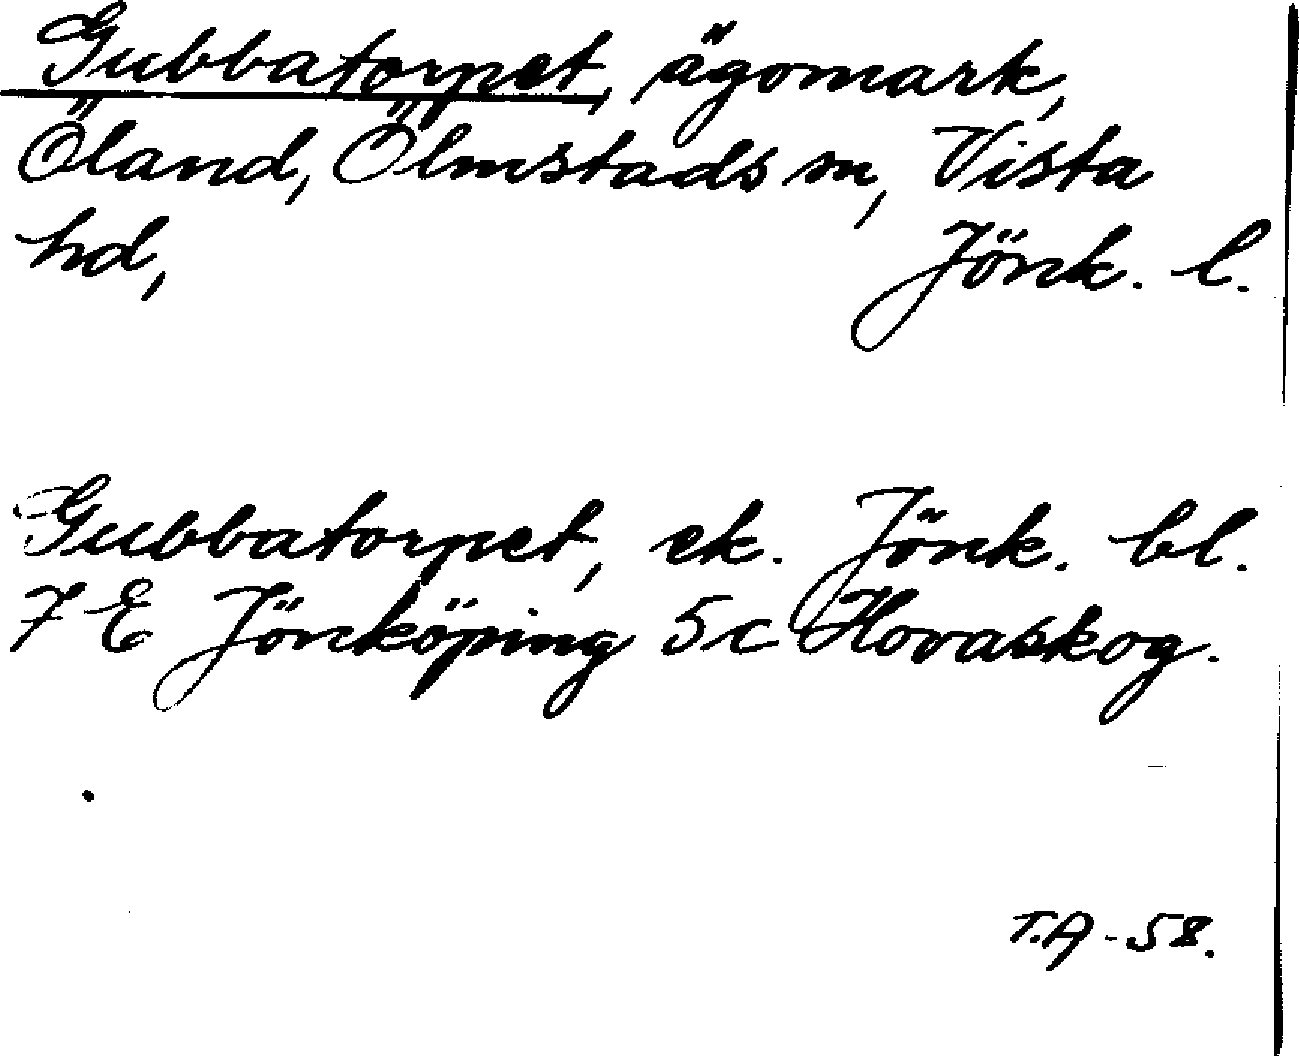 Gubbatorpet, ägomark,
Öland, Ölmstads sn, Vista
hd, Jönk. l.
Gubbatorpet, ek. Jönk. bl.
7 E Jönköping 5c Hovaskog.
T.A-58.